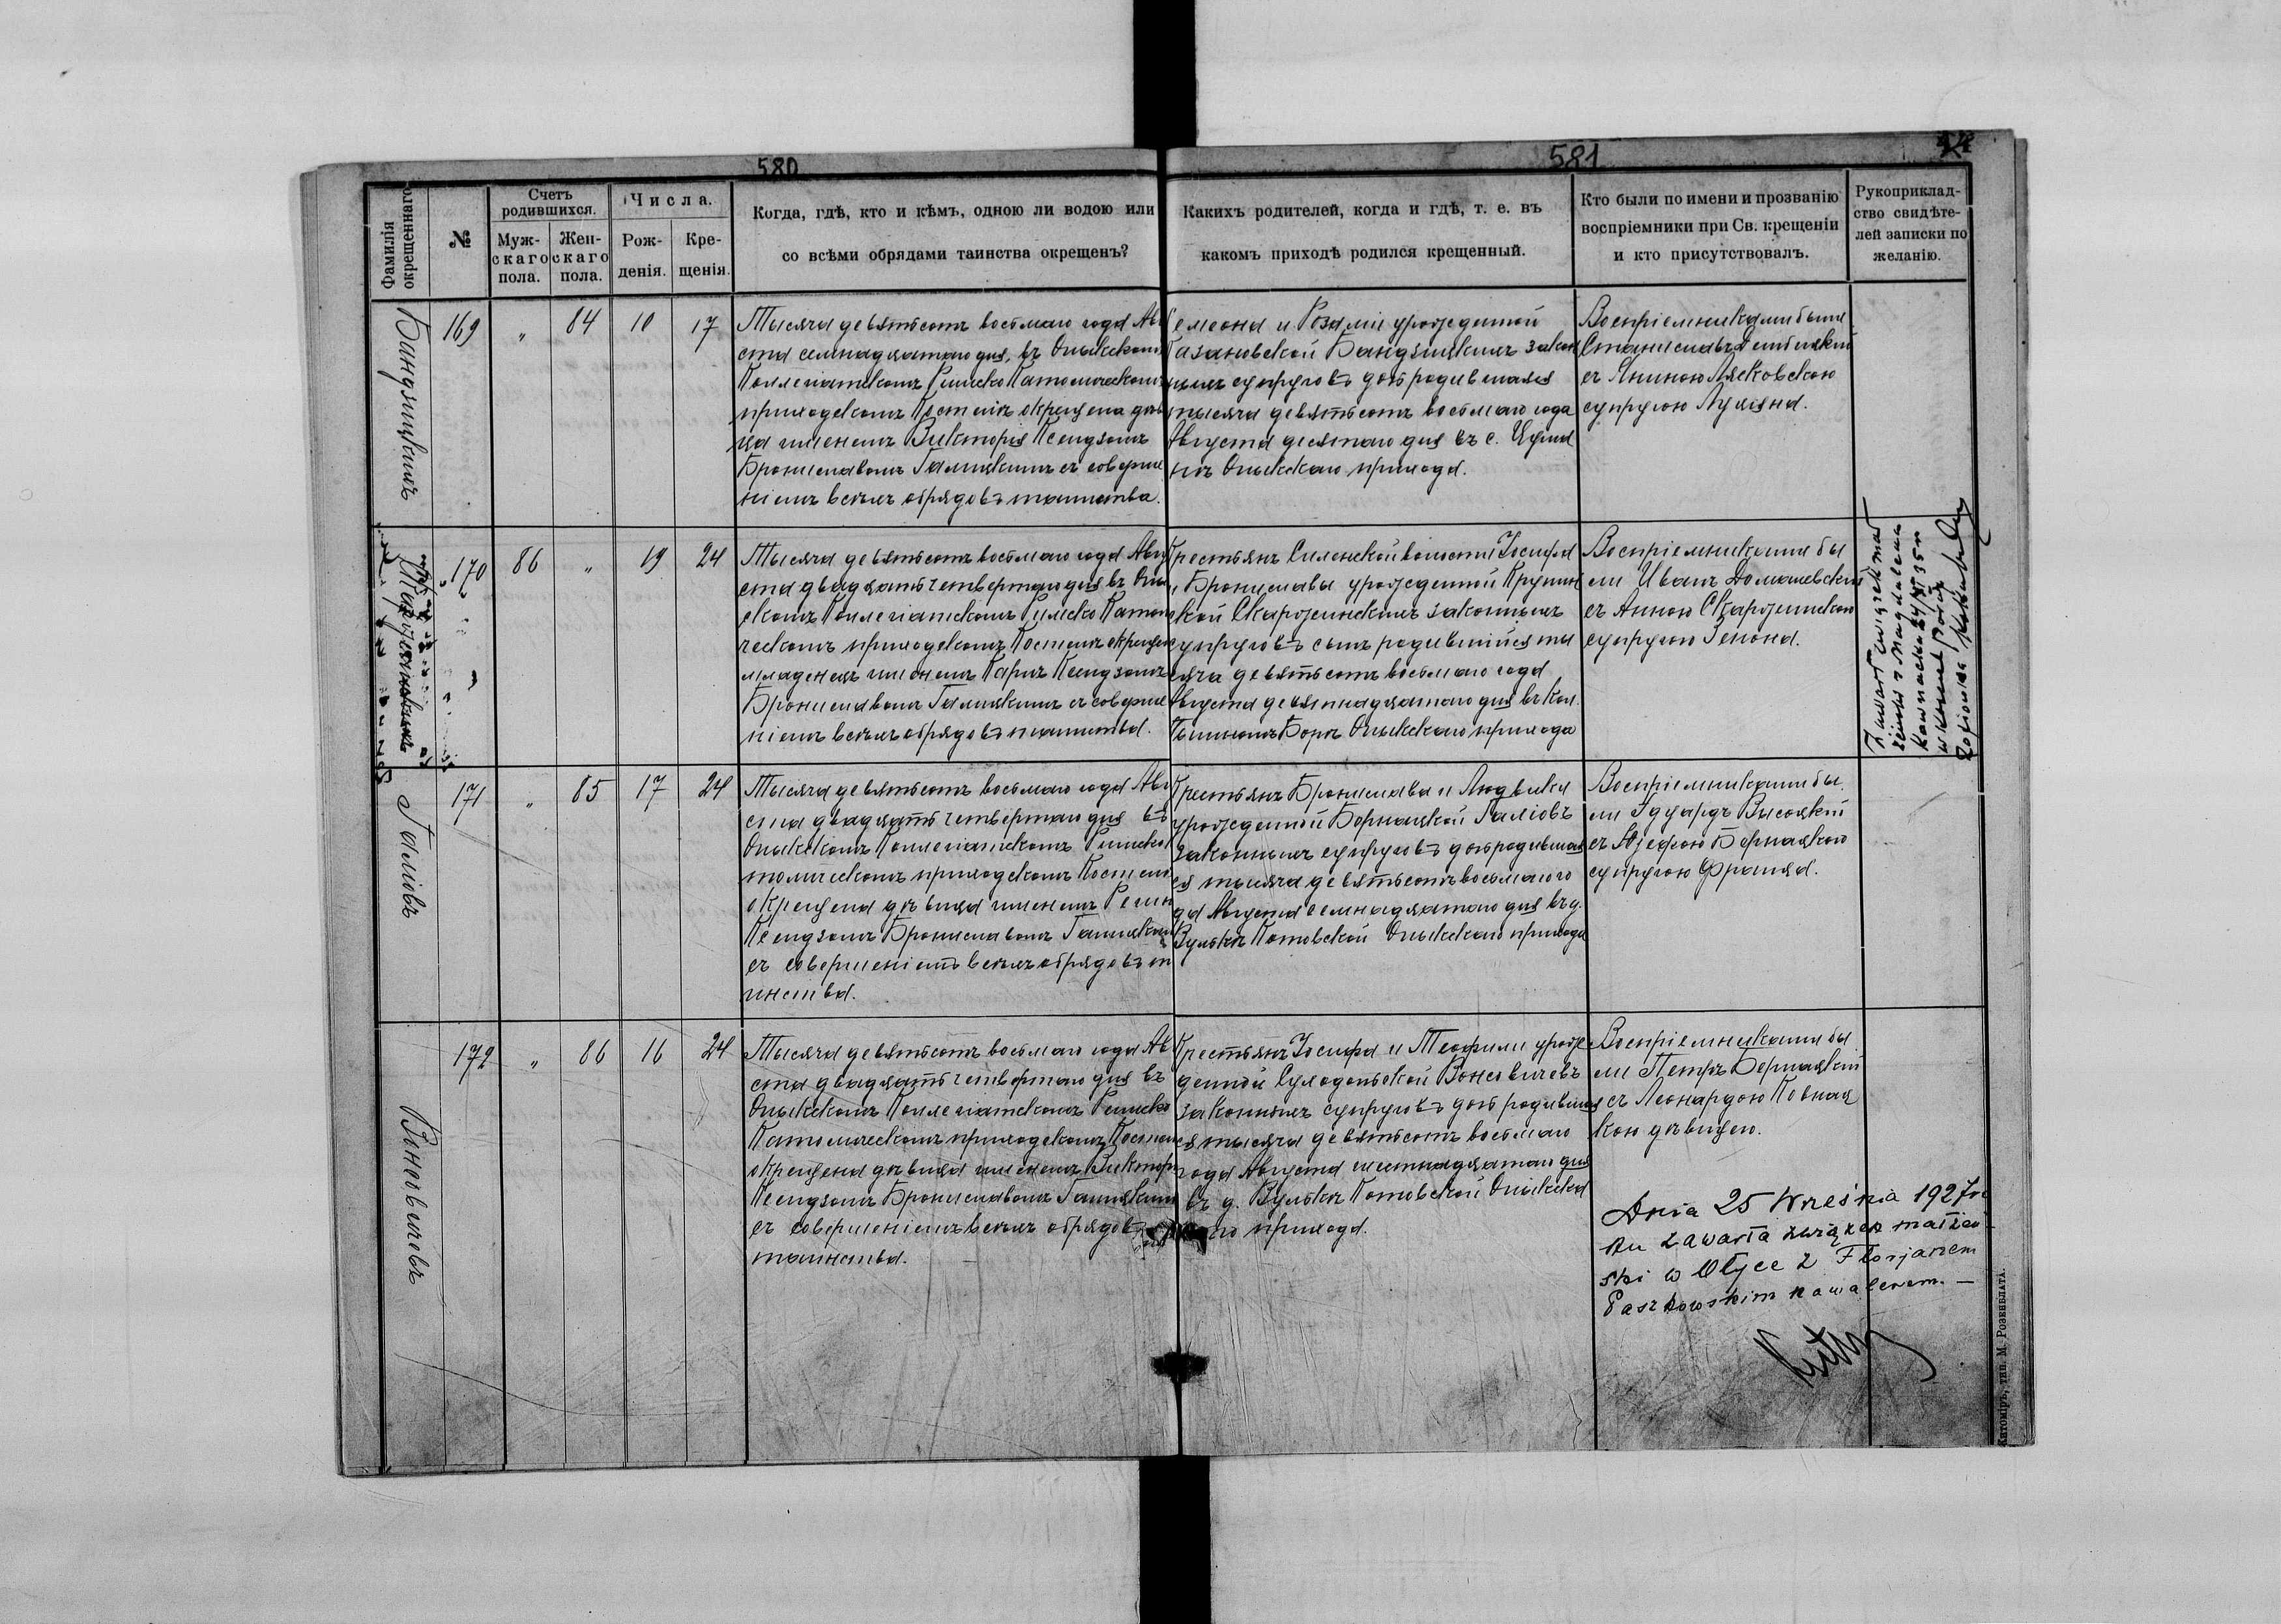 580
581
Фамилія окрещеннаго
№
Счетъ родившихся.
Муж-
скаго
пола.
Жен-
скаго
пола.
Числа.
Рож-
денія.
Кре-
щенія.
Когда, гдѣ, кто и кѣмъ, одною ли водою или
со всѣми обрядами таинства окрещенъ?
Какихъ родителей, когда и гдѣ, т. е. въ
какомъ приходѣ родился крещенный.
Кто были по имени и прозванію
воспріемники при Св. крещеніи
и кто присутствовалъ.
Рукоприклад-
ство свидѣте-
лей записки по
желанію.
169
"
84
10
17
Тысяча девятьсотъ восьмаго года Авг
ста семнадцатаго дня, въ Олыкскомъ
Коллегіатскомъ Римско Католическомъ
приходскомъ Костелѣ окрещена дѣв
ца именемъ Викторія Ксендзомъ
Брониславомъ Галицкимъ съ соверше
ніемъ всѣхъ обрядовъ таинства.
и Розаліи урожденной
Казановской Бандзицкихъ закон
ныхъ супруговъ дочь родившаяся
тысяча девятьсотъ восьмаго года
Августа десятаго дня въ с.
Олыкскаго прихода.
Воспріемниками были
Станиславъ
съ Яниною Лясковскою
супругою Луціяна.
170
86
"
19
24
Тысяча девятьсотъ восьмаго года Авгу
ста двадцать четвертаго дня въ Олык
скомъ Коллегіатскомъ Римско Катол
ческомъ приходскомъ Костелѣ окрещен
младенецъ именемъ Карлъ Ксендзомъ
Брониславомъ Галицкимъ съ соверше
ніемъ всѣхъ обрядовъ таинства.
Крестьянъ Силенской волости Іосифа
и Брониславы урожденной
Скарожинскихъ законныхъ
супруговъ сынъ родившійся ты
сяча девятьсотъ восьмаго года
Августа девятнадцатаго дня въ кол.
Борѣ Олыкскаго прихода
Воспріемниками бы
ли Иванъ Домашевскій
съ Анною Скарожинскою
супругою Зенона.
171
"
85
17
24
Галіовъ
Тысяча девятьсотъ восьмаго года Авг
ста двадцать четвертаго дня въ
Олыкскомъ Коллегіатскомъ Римско
толическомъ приходскомъ Костелѣ
окрещена дѣвица именемъ
Ксендзомъ Брониславомъ Галицким
съ совершеніемъ всѣхъ обрядовъ та
инства.
Крестьянъ Бронислава и Людвики
урожденной Галіовъ
законныхъ супруговъ дочь родившая
ся тысяча девятьсотъ восьмаго го
да Августа семнадцатаго дня въ д.
Вулькѣ Котовской Олыкскаго прихода
Воспріемниками бы
ли Эдуардъ Высоцкій
съ Бернацкою
супругою Франца.
172
"
86
16
24
Воновичовъ
Тысяча девятьсотъ восьмаго года Ав
ста двадцать четвертаго дня въ
Олыкскомъ Коллегіатскомъ Римско
Католическомъ приходскомъ Костел
окрещена дѣвица именемъ Виктор
Ксендзомъ Брониславомъ Галицким
съ совершеніемъ всѣхъ обрядовъ
таинства.
Крестьянъ Іосифа и Теофили урож
денной Суходольской Воновичевъ
законныхъ супруговъ дочь родившая
ся тысяча девятьсотъ восьмаго
года Августа шестнадцатаго дня
въ д. Вулькѣ Котовской Олыкска
го прихода.
Воспріемниками бы
ли Петръ Бернацкій
съ Леонардою Ковнац
кою дѣвицею.
Dnia 25 Września 1927 ro
ku zawarła związek małżeń-
ski w Ołyce z Florjanem
Paszkowskim kawalerem. —
Житоміръ, тип. М. Розенблата.